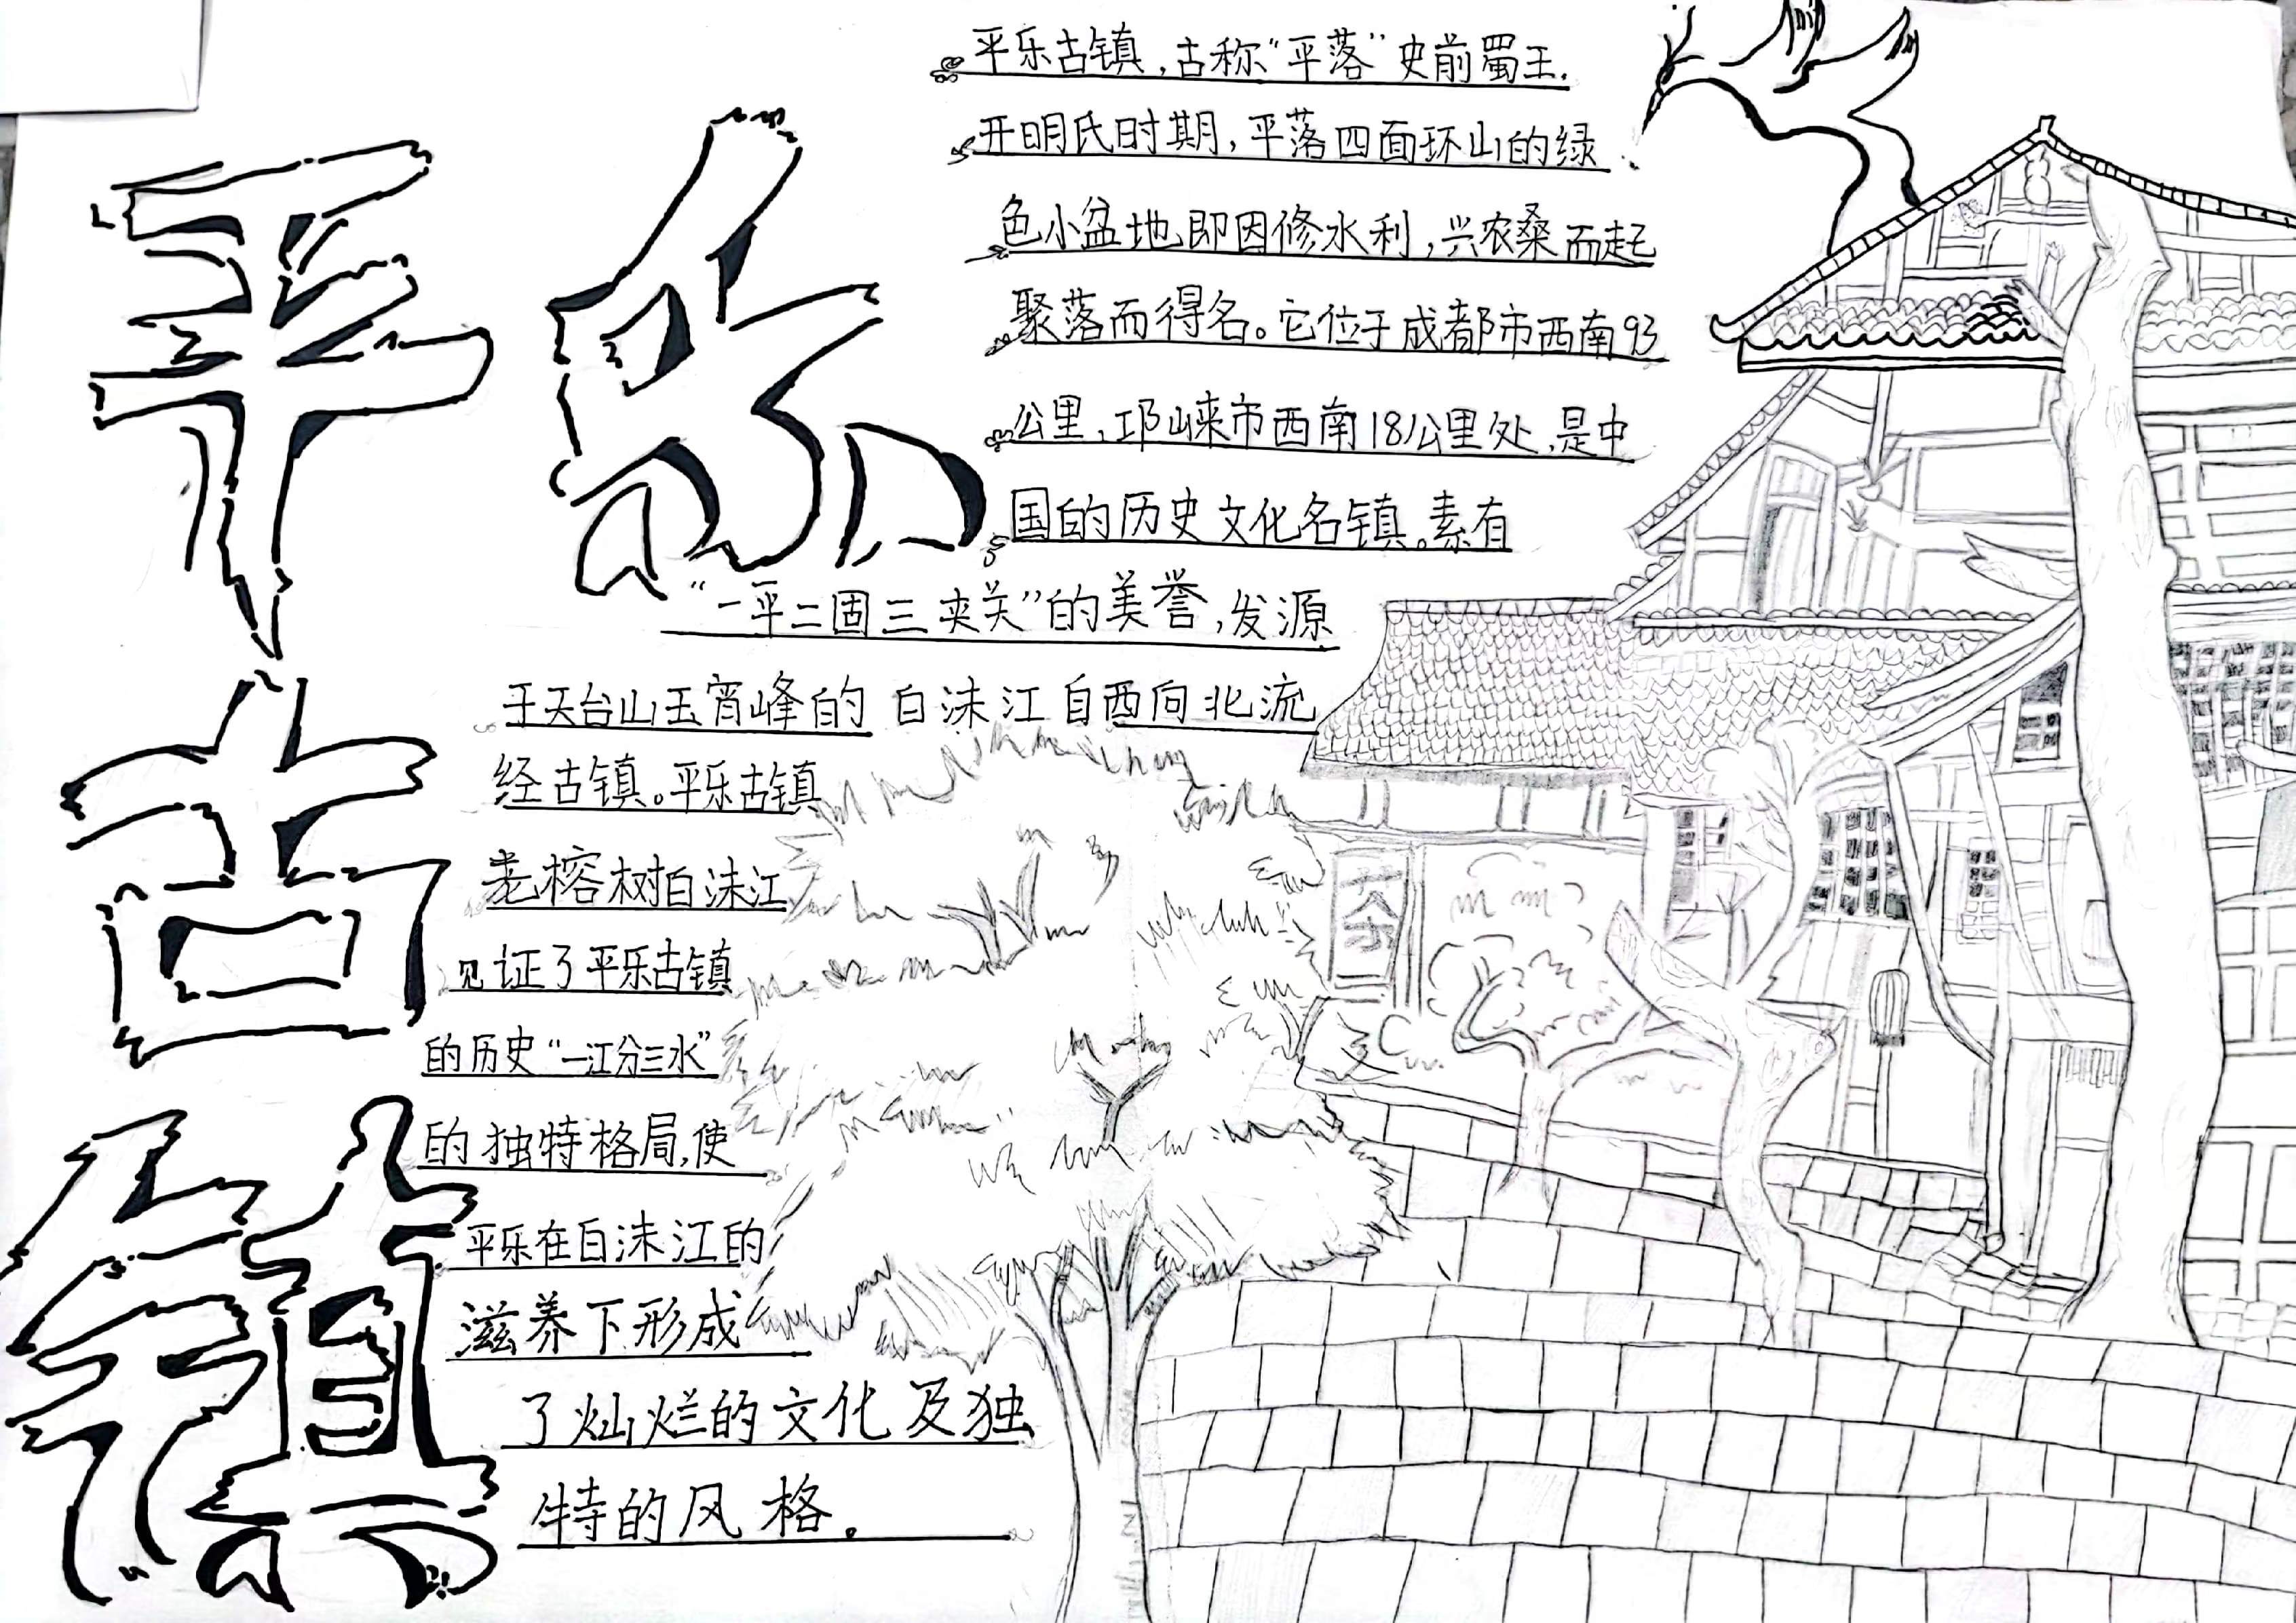 平乐
古
镇
平乐古镇，古称“平落”史前蜀王.
开明氏时期，平落四面环山的绿
色小盆地即因修水利，兴农桑而起
聚落而得名。它位于成都市西南93
公里，邛崃市西南18公里处，是中
国的历史文化名镇。素有
“一平二固三夹关”的美誉，发源
于天台山玉宵峰的白沫江自西向北流
经古镇。平乐古镇
老榕树白沫江
见证了平乐古镇
的历史“一江分三水”
的独特格局，使
平乐在白沫江的
滋养下形成
了灿烂的文化及独
特的风格。
茶